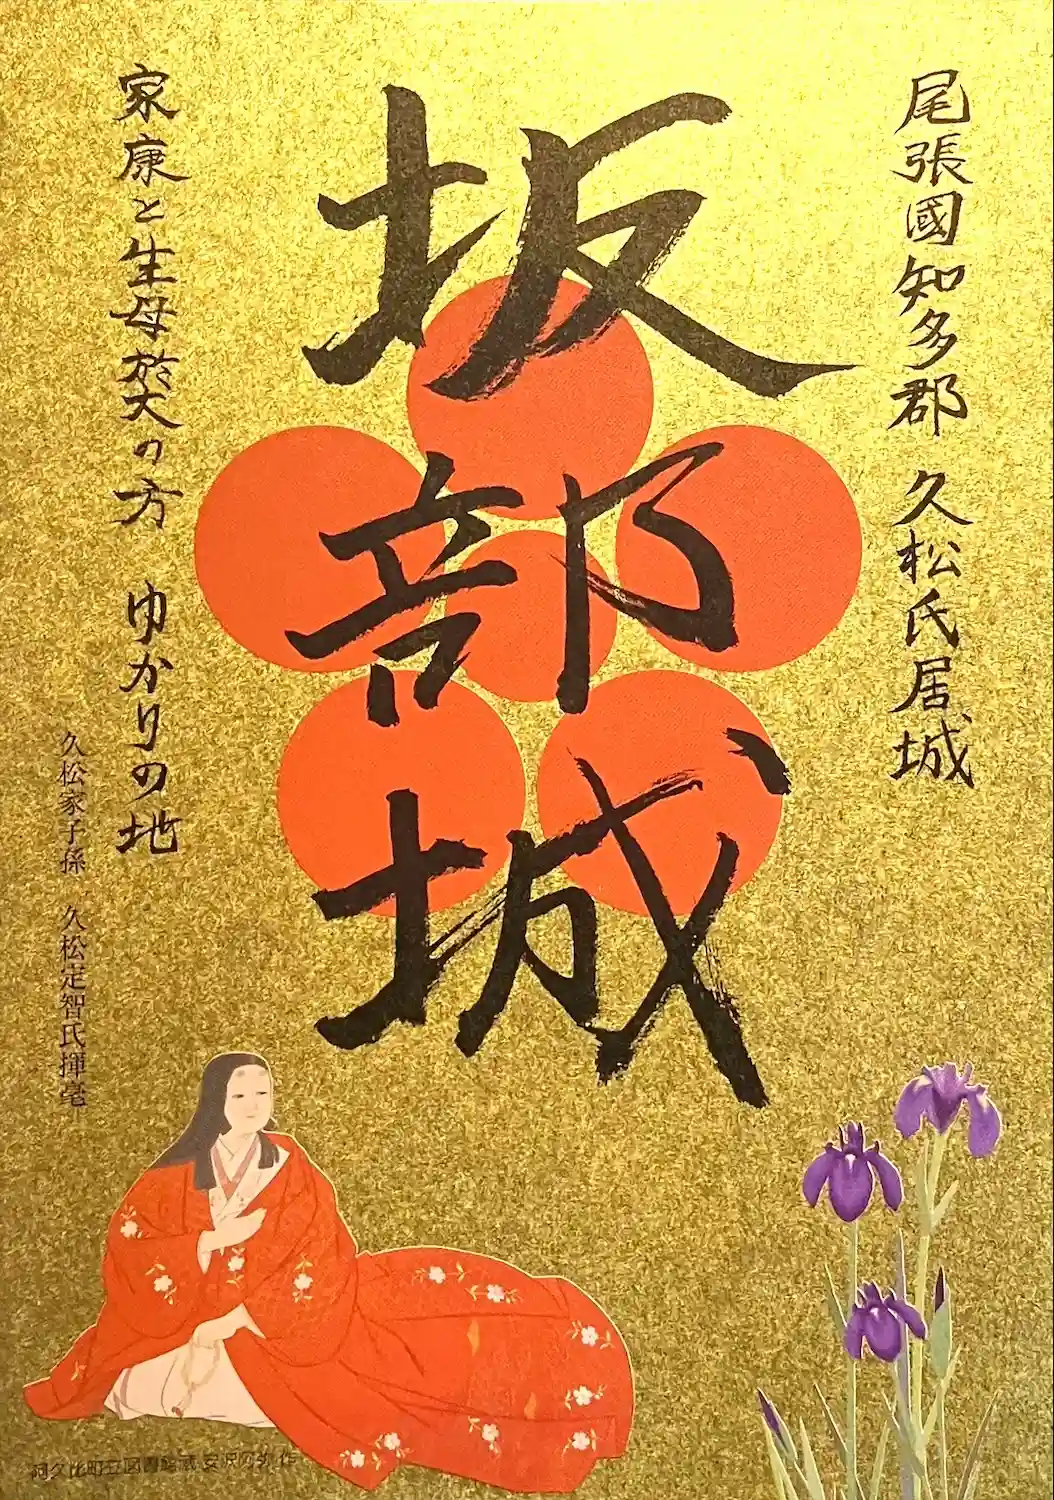 尾張國知多郡 久松氏居城
坂部城
家康と生母於大の方 ゆかりの地
久松家子孫 久松定智氏揮毫
阿久比町立図書館蔵 安沢阿弥 作